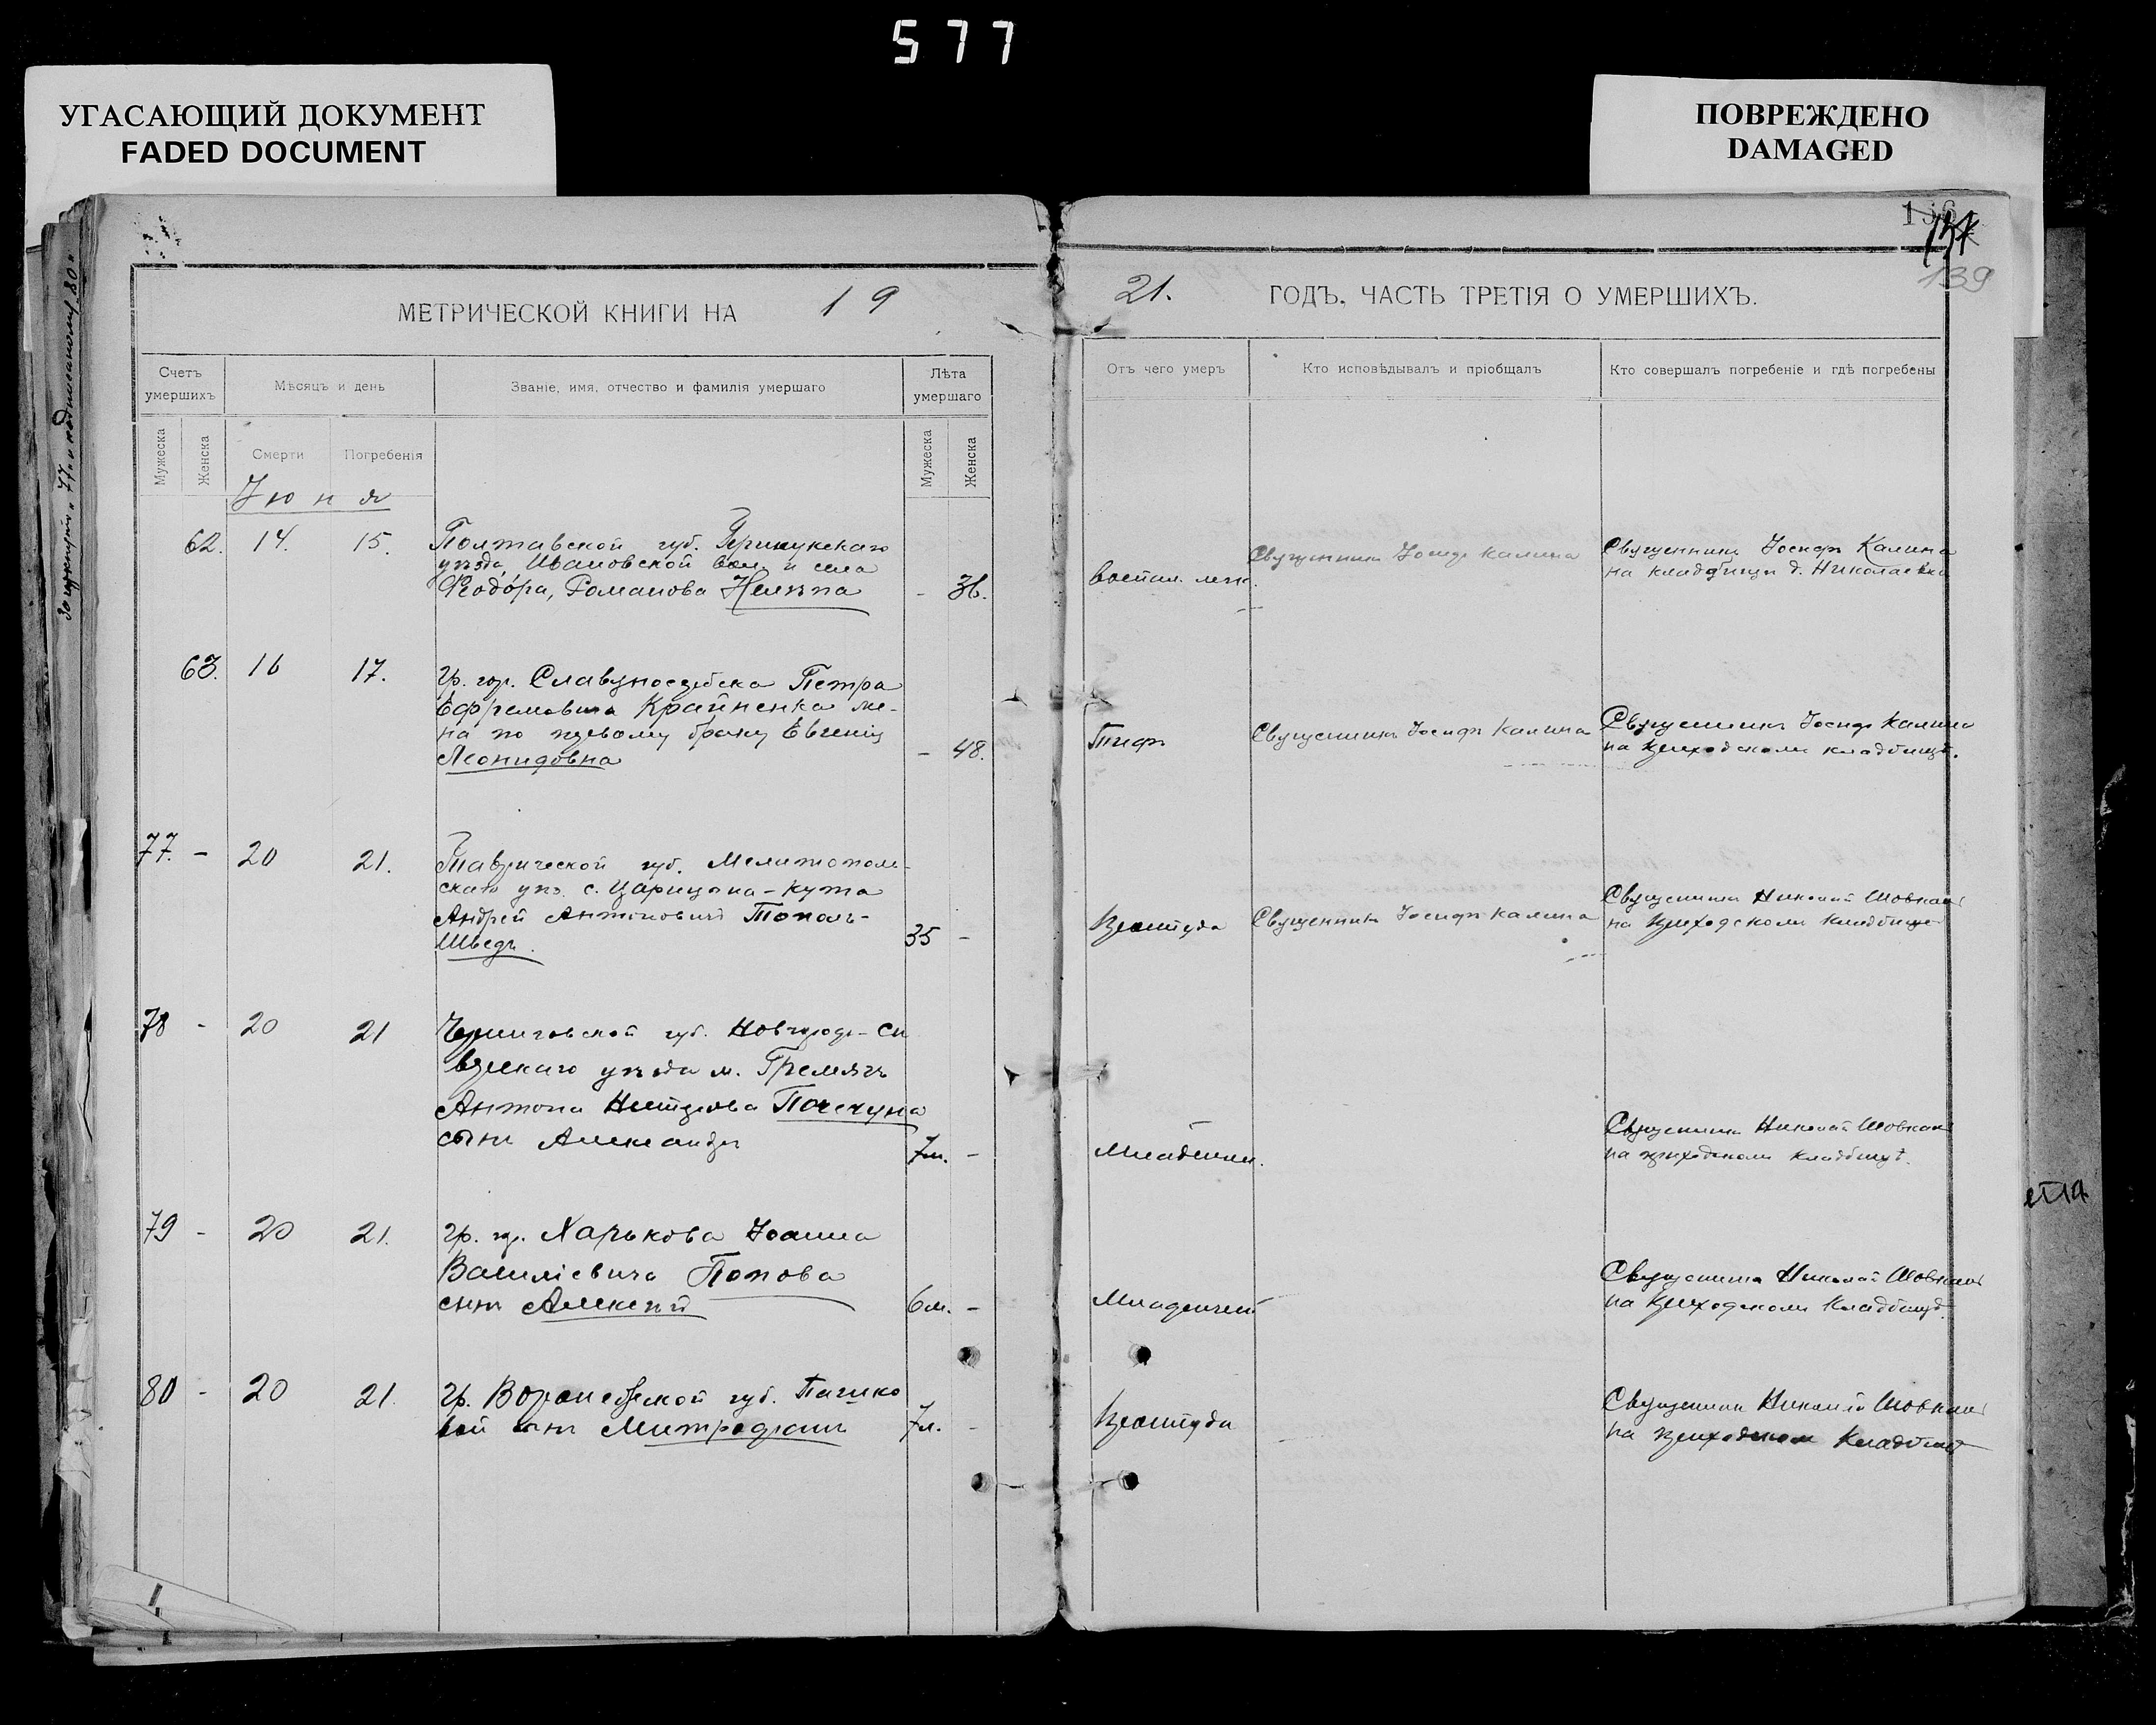 577
УГАСАЮЩИЙ ДОКУМЕНТ
FADED DOCUMENT
ПОВРЕЖДЕНО
DAMAGED
139
МЕТРИЧЕСКОЙ КНИГИ НА 19
21. ГОДЪ, ЧАСТЬ ТРЕТІЯ О УМЕРШИХЪ.
Счетъ умершихъ
Мѣсяцъ и день
Званіе, имя, отчество и фамилія умершаго
Лѣта умершаго
Отъ чего умеръ
Кто исповѣдывалъ и пріобщалъ
Кто совершалъ погребеніе и гдѣ погребены
Мужеска
Женска
Смерти
Погребенія
Мужеска
Женска
Іюня
62. 14. 15.
Полтавской губ.
уѣзда, Ивановской вол. и села
Ѳеодора, Романова
- 36.
воспал. легк.
Священникъ Іосифъ Калина
Священникъ Іосифъ Калина
на кладбищѣ д. Николаевка
63. 16 17.
Гр. гор. Славяносербска Петра
Ефремовича Крайненка же-
на по первому браку Евгенія
Леонидовна
- 48.
Тифъ
Священникъ Іосифъ Калина
Священникъ Іосифъ Калина
на приходскомъ кладбищѣ.
77. - 20 21.
Таврической губ. Мелитополь-
скаго уѣз. с. Царицына-Кута
Андрей Антоновичъ Тополь-
Шведъ.
35 -
Простуда
Священникъ Іосифъ Калина
Священникъ Николай Шовкан
на приходскомъ кладбище
78 - 20 21
Черниговской губ. Новгородъ-Сѣ
верскаго уѣзда м. Гремячъ
Антона Почекуна
сынъ Александръ
7м. -
Младенч.
Священникъ Николай Шовкан
на приходскомъ кладбищѣ.
79 - 20 21.
Гр. гор. Харькова Іоанна
Василіевича Попова
сынъ Алексѣй
6м. -
Младенчест
Священникъ Николай Шовкан
на приходскомъ кладбищѣ.
80 - 20 21.
Гр. Воронежской губ. Пашко
вой сынъ Митрофанъ
7л. -
Простуда
Священникъ Николай Шовкан
на приходском кладбищѣ